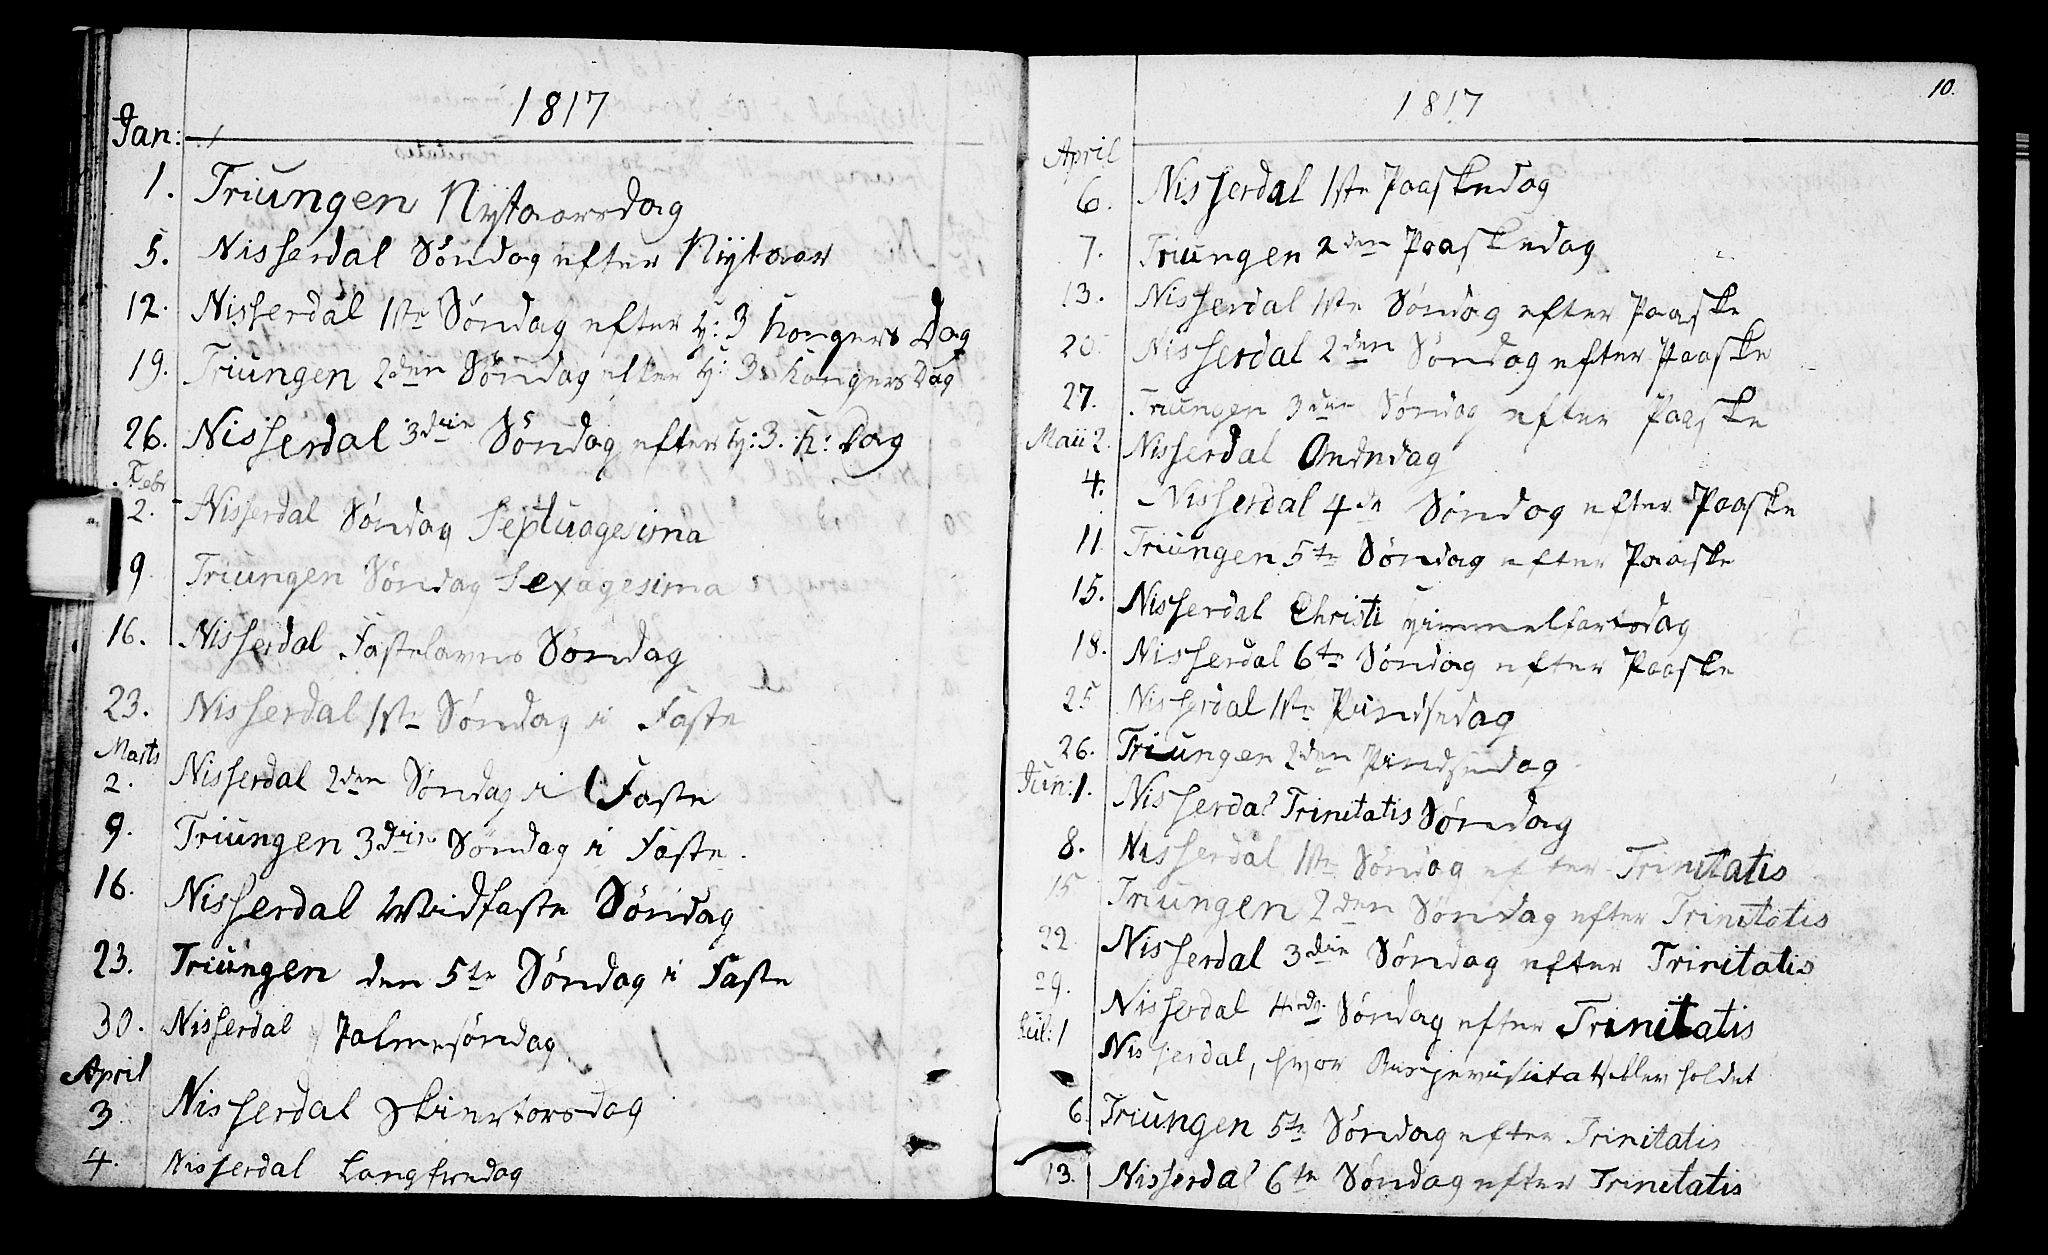 1817
Jan:
1. Triungen Nÿtaarsdag
5. Nisserdal Søndag efter Nÿtaar
12. Nisserdal 1ste Søndag efter H: 3 Kongers Dag
19. Triungen 2den Søndag efter H: 3 Kongers Dag
26. Nisserdal 3die Søndag efter H: 3. K: Dag
Febr
2. Nisserdal Søndag Septuagesima
9 Triungen Søndag Sexagesima
16. Nisserdal Fastelavns Søndag
23. Nisserdal 1ste Søndag i Faste
Marts
2. Nisserdal 2den Søndag i Faste
9. Triungen 3die Søndag i Faste.
16. Nisserdal Midfaste Søndag
23. Triungen den 5te Søndag i Faste
30. Nisserdal Palmesøndag
April
3 Nisserdal Skiertorsdag
4. Nisserdal Langfredag
10.
1817
April
6. Nisserdal 1ste Paaskedag
7. Triungen 2den Paaskedag
13. Nisserdal 1ste Søndag efter Paaske
20 Nisserdal 2den Søndag efter Paaske
27. Triungen 3die Søndag efter Paaske
Maii 2. Nisserdal Bededag
4. Nisserdal 4de Søndag efter Paaske
11 Triungen 5te Søndag efter Paaske
15. Nisserdal Christi Himmelfartsdag
18. Nisserdal 6te Søndag efter Paaske
25 Nisserdal 1ste Pindsedag
26. Triungen 2den Pindsedag
Jun: 1. Nisserdal Trinitatis Søndag
8. Nisserdal 1ste Søndag efter Trinitatis
15 Triungen 2den Søndag efter Trinitatis
22 Nisserdal 3die Søndag efter Trinitatis
29. Nisserdal 4de Søndag efter Trinitatis
Jul: 1 Nisserdal, hvor Bispevisitats blev holdet
6 Triungen 5te Søndag efter Trinitatis
13. Nisserdal 6te Søndag efter Trinitatis